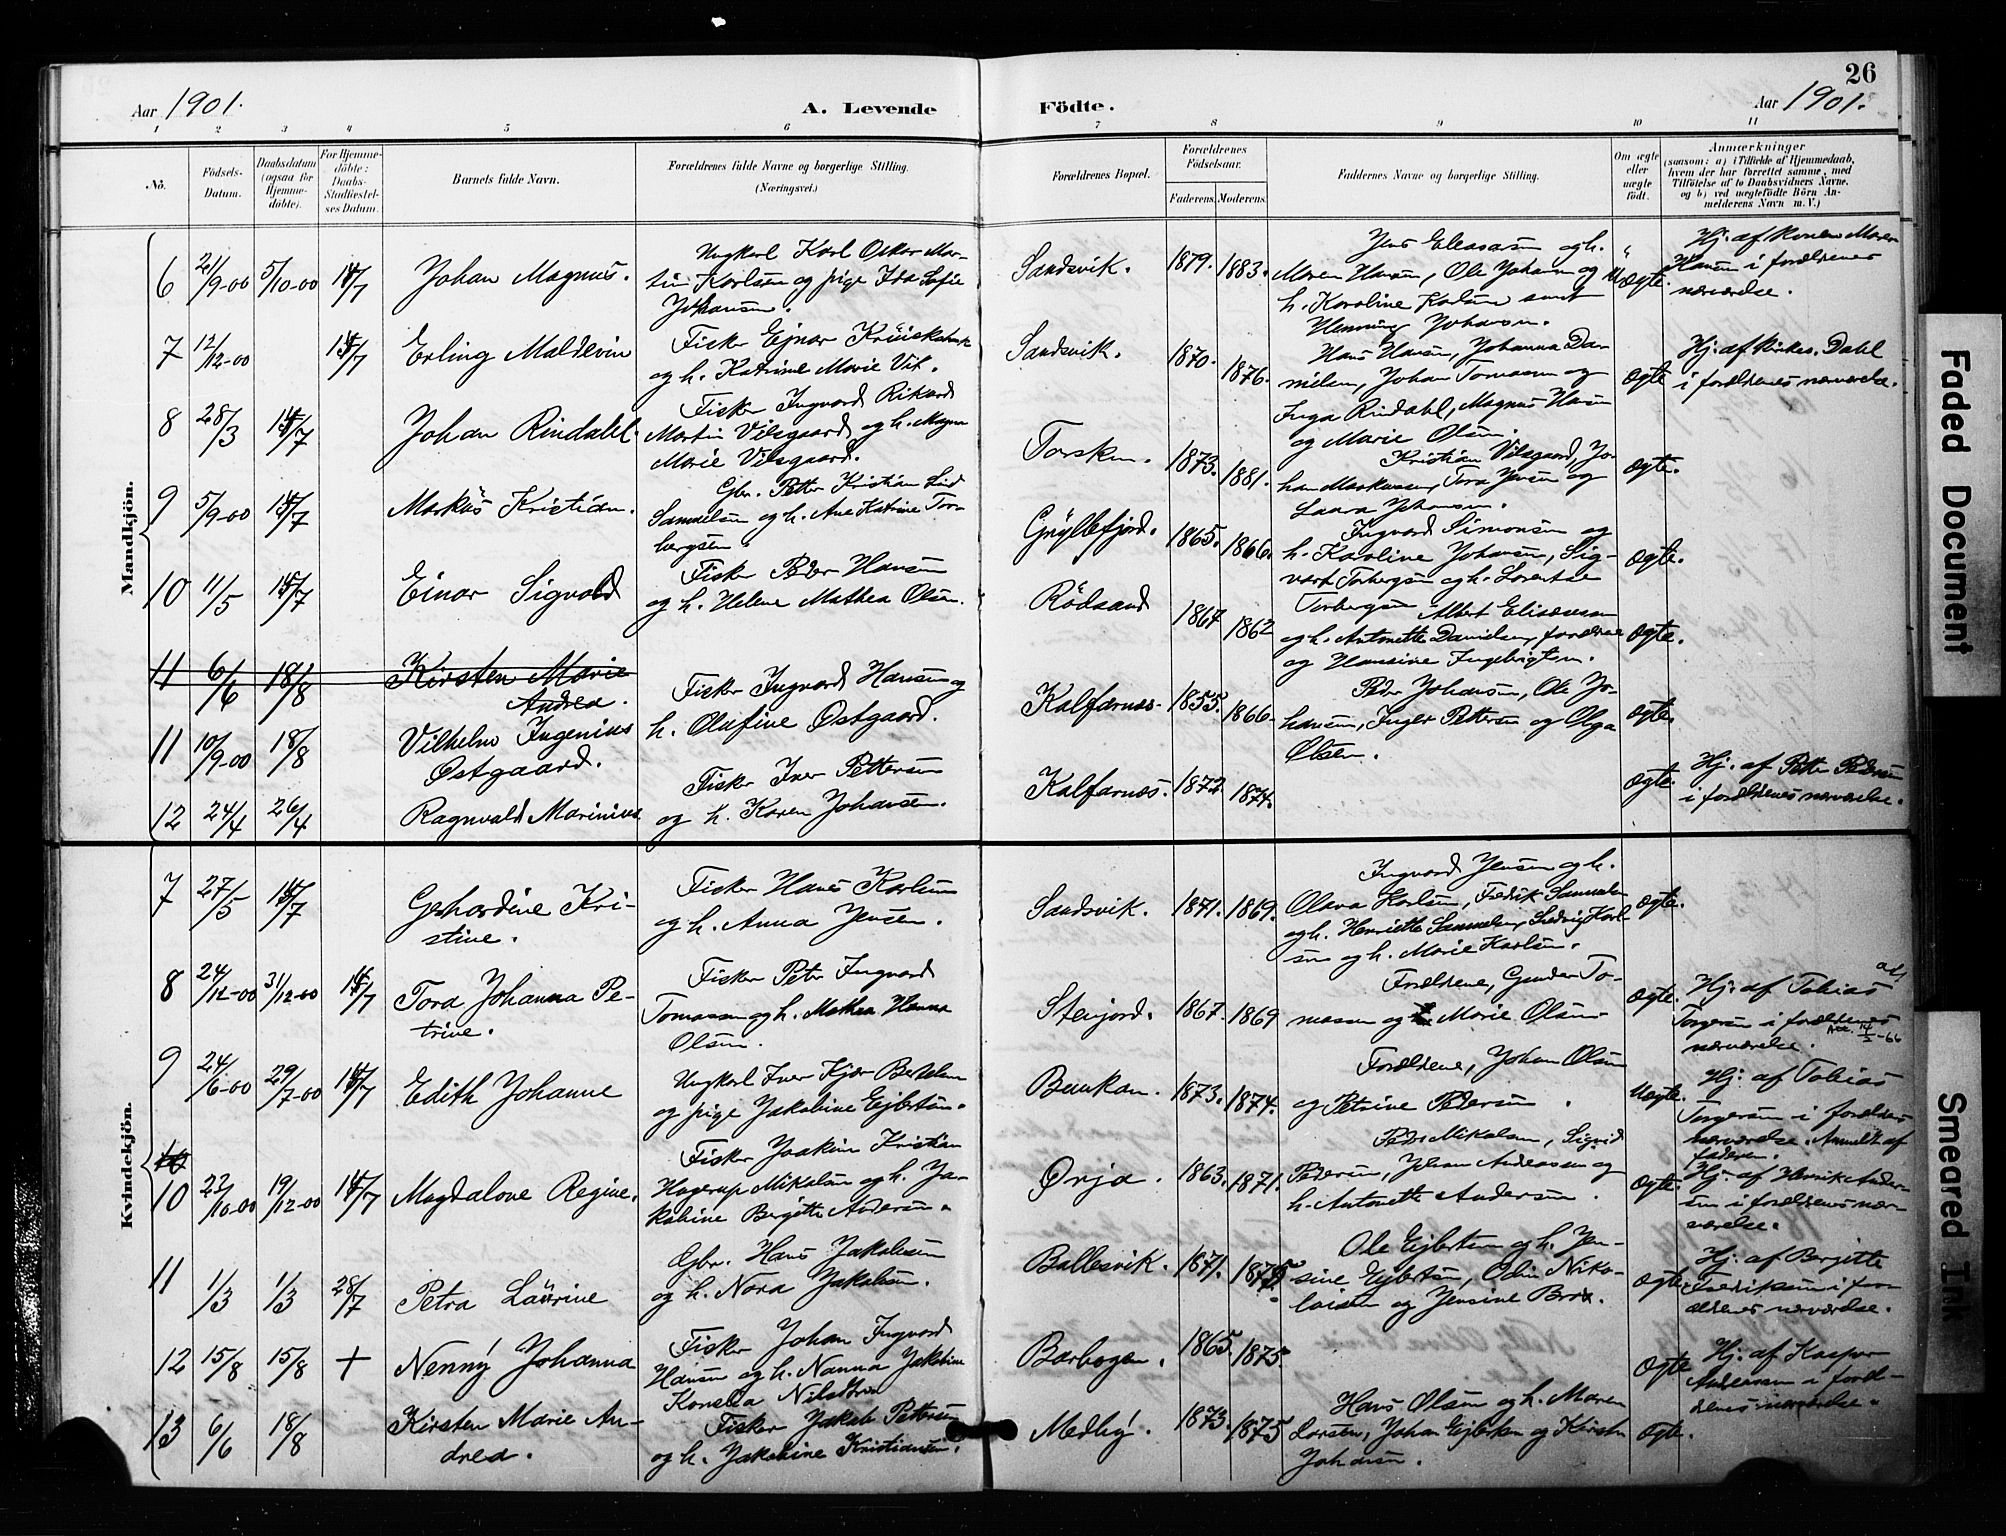 26
Aar 1901.
A. Levende Födte.
Aar 1901.
1 2 3 4 5 6 7 8 9 10 11
No.
Födsels-Datum.
Daabsdatum (ogsaa for Hjemme-döbte).
For Hjemme-döbte: Daabs-Stadfæstel-ses Datum.
Barnets fulde Navn.
Forældrenes fulde Navne og borgerlige Stilling. (Næringsvei.)
Forældrenes Bopæl.
Forældrenes Födselsaar.
Faderens. Moderens.
Faddernes Navne og borgerlige Stilling.
Om ægte eller uægte födt.
Anmærkninger
(saasom: a) i Tilfælde af Hjemmedaab,
hvem der har forrettet samme, med
Tilföielse af to Daabsvidners Navne.
og b) ved uegtefödte Börn An-
melderens Navn m. V.)
Mandkjön.
6 21/9-00 5/10-00 14/7 Johan Magnus.
Ungkarl Karl Oskar Mar-
tin Karlsen og pige Ida Sofie
Johansen.
Sandsvik. 1879. 1883.
Jens Eleasasen og h.
Maren Hansen, Ole Johansen og
h. Karoline Karlsen samt
Henning Johansen.
Uægte.
Hj. af konen Maren
Hansen i forældrenes
nærværelse.
7 12/12-00 14/7 Erling Maldevin
Fisker Ejnar
og h. Katrine Marie Vit.
Sandsvik. 1870. 1876.
Hans Hansen, Johanna Da-
nielsen, Johan Tomassen og
Inga Rindahl, Magnus Hansen
og Marie Olsen.
Ægte
Hj. af kirkes. Dahl
i forældrenes nærværelse.
8 28/3 14/7 Johan Rindahl.
Fisker Ingvard Rikard
Martin Vilsgaard og h. Magna
Marie Vilsgaard.
Torsken. 1873. 1881.
Kristian Vilsgaard, Jo-
han Markussen, Tora Jensen og
Laura Johansen.
Ægte.
9 5/9-00 14/7 Markus Kristian.
Gbr. Petter Kristian
Samuelsen og h. Ane Katrine Tor-
bergsen.
Gryllefjord. 1865. 1866.
Ingvard Simonsen og
h. Karoline Johansen, Sig-
vart Torbergsen og h. Lorentse
Torbergsen
Ægte.
10 11/5 14/7 Einar Sigvald
Fisker Peder Hansen
og h. Helene Mathea Olsen.
Rödsand 1867 1862
Albert Eliasansen
og h. Antonette Davidsen, forældrene
og Hansine Ingebrigtsen.
Ægte.
11 6/6 18/8 Kirsten Marie
Andrea.
11 10/9-00 18/8 Vilhelm Ingenius
Østgaard.
Fisker Ingvard Hansen og
h. Olufine Østgaard.
Kalfarnæs. 1855. 1866.
Peder Johansen, Ole Jo-
hansen, Inger Pettersen og Olga
Olsen.
Ægte.
12 24/4 26/4 Ragnvald Marinius
Fisker Iver Pettersen
og h. Karen Johansen.
Kalfarnæs. 1872. 1874.
Ægte.
Hj. af Petter Pedersen
i forældrenes nærværelse.
Kvindekjön.
7 27/5 14/7 Gerhardine Kri-
stine.
Fisker Hans Karlsen
og h. Anna Jensen.
Sandsvik. 1871. 1869.
Ingvard Jensen og h.
Olava Karlsen, Fredrik Samuelsen
og h. Henriette Samuelsen, Ludvig Karl-
sen og h. Marie Karlsen.
Ægte.
8 24/12-00 31/12-00 14/7 Tora Johanna Pe-
trine.
Fisker Peter Ingvard
Tomassen og h. Mathea Hanna
Olsen.
Stenjord. 1867. 1869
Forældrene, Gunder To-
massen og Marie Olsen.
Ægte.
Hj. af Tobias
Torgersen i forældrenes
nærværelse.
9 24/6-00 29/7-00 14/7 Edith Johanne
Ungkarl Iver Kjær Bertelsen
og pige Jakobine Ejlertsen.
Bunkan. 1873. 1874.
Forældrene, Johan Olsen
og Petrine Pedersen.
Uægte.
Hj. af Tobias
Torgersen i forældres
nærværelse. Anmeldt af
faderen.
10 23/10-00 19/12-00 14/7 Magdalone Regine.
Fisker Joakim Kristian
Hagerup Mikalsen og h. Ja-
kobine Bergitte Andersen.
Ørja. 1863. 1871.
Peder Mikalsen, Sigrid
Pedersen, Johan Andreassen og
h. Antonette Andersen.
Ægte.
Hj. af Henrik Ander-
sen i forældrenes nær-
værelse.
11 1/3 1/3 28/7 Petra Laurine
Gbr. Hans Jakobsen
og h. Nora Jakobsen.
Ballesvik. 1871.
Ole Ejlertsen og h. Jen-
sine Ejlertsen, Odin Niko-
laisen og Jensine Brox.
Ægte.
Hj. af Bergitte
Fredriksen i for-
ældrenes nærværelse.
12 15/8 15/8 + Nenny Johanna
Fisker Johan Ingvard
Hansen og h. Nanna Jakobine
Konelia Nilsdtr
Barbogen. 1865. 1875.
Ægte
Hj. af Kaspar
Andersen i foræl-
drenes nærværelse.
13 6/6 18/8 Kirsten Marie An-
drea.
Fisker Jakob Pettersen
og h. Jakobine Kristiansen.
Medby. 1873. 1875
Hans Olsen og h. Maren
Larsen, Johan Ejlertsen og Kirsten
Johansen.
Ægte.
Faded Document
Smeared Ink